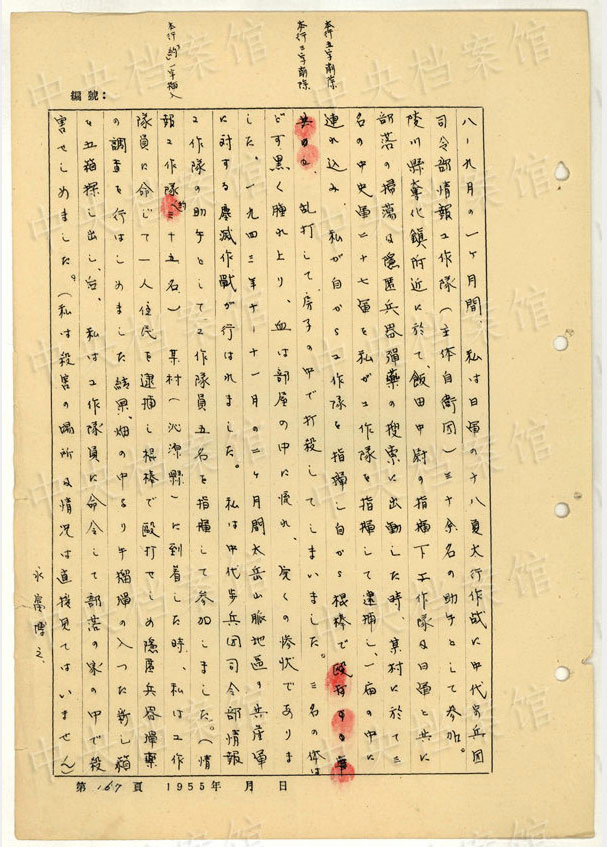 本行五字削除
本行三字削除
本行「約」一字挿入
編號:
八―九月の一ヶ月間 私は日軍の十八夏太行作战に中代步兵団
司令部情報工作隊(主体自衛団)三十余名の助手として参加。
陵川縣奪化鎮附近に於て、飯田中尉の指揮下工作隊及日軍と共に
部落の掃蕩及隠匿兵器彈薬の搜索に出動した時、某村に於て三
名の中央軍二十七軍を私が工作隊を指揮して逮捕し、一廟の中に
連れ込み、私が自から工作隊を指揮し自から棍棒で
乱打して、房子の中で打殺してしまいました。三名の体は
どす黒く腫れ上り、血は部屋の中に流れ、完くの惨状でありま
した。一九四三年十―十一月の二ヶ月間太岳山脈地區の共産軍
に対する塵滅作戰が行はれました。私は中代步兵団司令部情報
工作隊の助手として工作隊員五名を指揮して参加しました。(情
報工作隊約三十五名) 某村(沁源縣)に到着した時、私は工作
隊員に命じて一人住民を逮捕し棍棒で殴打せしめ隠匿兵器彈薬
の調査を行はしめました結果、畑の中より手榴彈の入つた新しい箱
を五箱探し出し、私は工作隊員に命令して部落の家の中で殺
害せしめました。(私は殺害の場所及情況は直接見てはいません)
永富博之
第167頁 1955年 月 日
中央档案馆